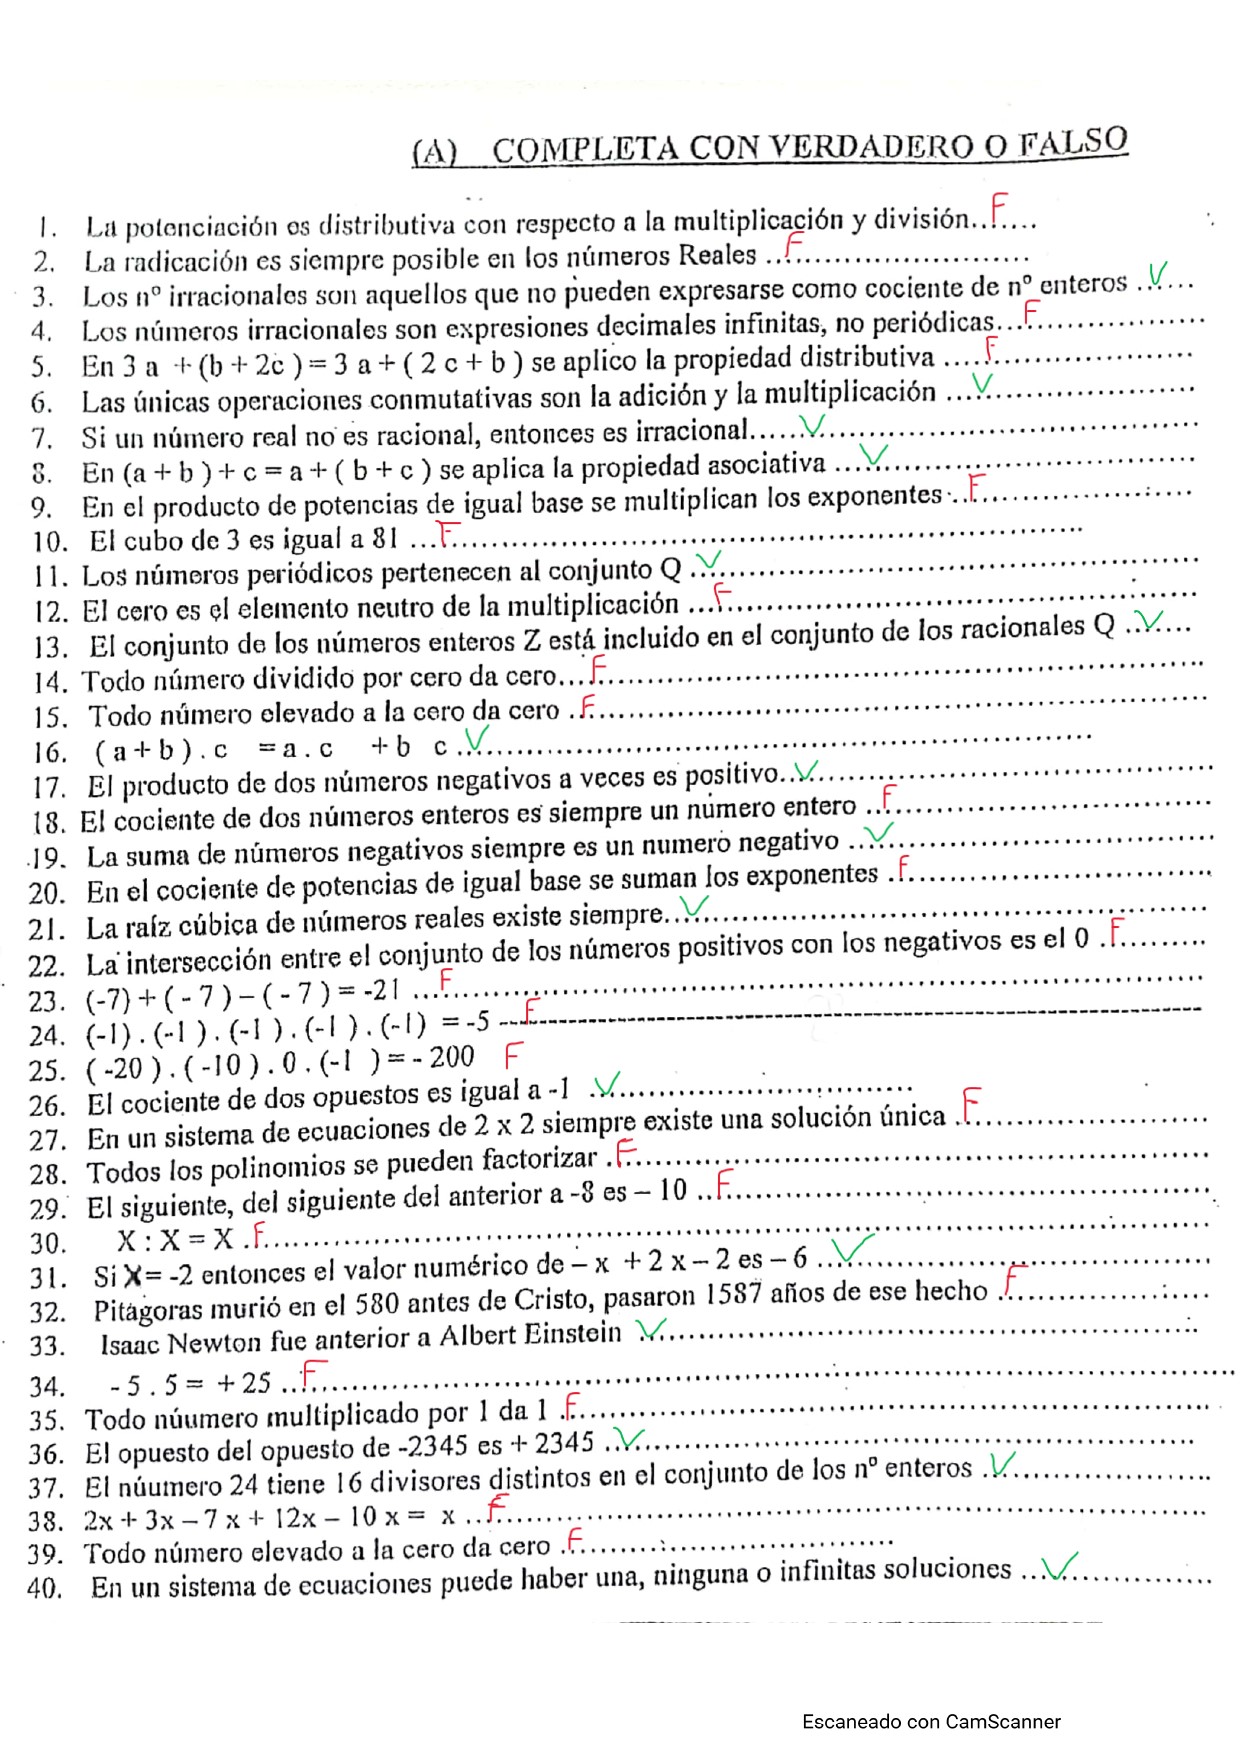 (A) COMPLETA CON VERDADERO O FALSO
1. La potenciación es distributiva con respecto a la multiplicación y división..F....
2. La radicación es siempre posible en los números Reales ..F......................
3. Los nº irracionales son aquellos que no pueden expresarse como cociente de nº enteros .V...
4. Los números irracionales son expresiones decimales infinitas, no periódicas...F.................
5. En 3 a + (b + 2c ) = 3 a + ( 2 c + b ) se aplico la propiedad distributiva ....F....................
6. Las únicas operaciones conmutativas son la adición y la multiplicación ...V....................
7. Si un número real no es racional, entonces es irracional.....V......................................
8. En (a + b ) + c = a + ( b + c ) se aplica la propiedad asociativa ...V..............................
9. En el producto de potencias de igual base se multiplican los exponentes ..F.....................
10. El cubo de 3 es igual a 81 ...F..............................................................
11. Los números periódicos pertenecen al conjunto Q ..V................................................
12. El cero es el elemento neutro de la multiplicación ...F..............................................
13. El conjunto de los números enteros Z está incluido en el conjunto de los racionales Q ..V...
14. Todo número dividido por cero da cero...F............................................................
15. Todo número elevado a la cero da cero .F.............................................................
16. ( a + b ) . c = a . c + b c .V.............................................................
17. El producto de dos números negativos a veces es positivo..V........................................
18. El cociente de dos números enteros es siempre un número entero ..F................................
19. La suma de números negativos siempre es un numero negativo ..V..................................
20. En el cociente de potencias de igual base se suman los exponentes .F..............................
21. La raíz cúbica de números reales existe siempre..V..................................................
22. La intersección entre el conjunto de los números positivos con los negativos es el 0 .F.........
23. (-7) + ( - 7 ) – ( - 7 ) = -21 ...F..............................................................
24. (-1) . (-1 ) . (-1 ) . (-1 ) . (-1) = -5 ---F--------------------------------------------------
25. ( -20 ) . ( -10 ) . 0 . (-1 ) = - 200 F
26. El cociente de dos opuestos es igual a -1 .V..............................
27. En un sistema de ecuaciones de 2 x 2 siempre existe una solución única .F.......................
28. Todos los polinomios se pueden factorizar .F.........................................................
29. El siguiente, del siguiente del anterior a -8 es – 10 ..F.............................................
30. X : X = X .F.....................................................................................
31. Si X= -2 entonces el valor numérico de – x + 2 x – 2 es – 6 ...V..................................
32. Pitágoras murió en el 580 antes de Cristo, pasaron 1587 años de ese hecho .F..................
33. Isaac Newton fue anterior a Albert Einstein V....................................................
34. - 5 . 5 = + 25 ..F.................................................................................
35. Todo núumero multiplicado por 1 da 1 .F............................................................
36. El opuesto del opuesto de -2345 es + 2345 ..V......................................................
37. El núumero 24 tiene 16 divisores distintos en el conjunto de los nº enteros .V....................
38. 2x + 3x – 7 x + 12x – 10 x = x ..F.................................................................
39. Todo número elevado a la cero da cero .F..............................
40. En un sistema de ecuaciones puede haber una, ninguna o infinitas soluciones ..V...............
Escaneado con CamScanner